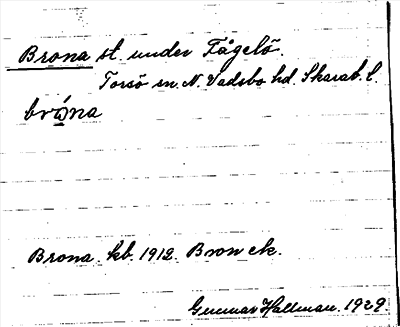 Brona st. under Fågelö.
Torsö sn. N. Vadsbo hd. Skarab. l.
brǫ́na
Brona kb. 1912. Bron ek.
Gunnar Hallman. 1929